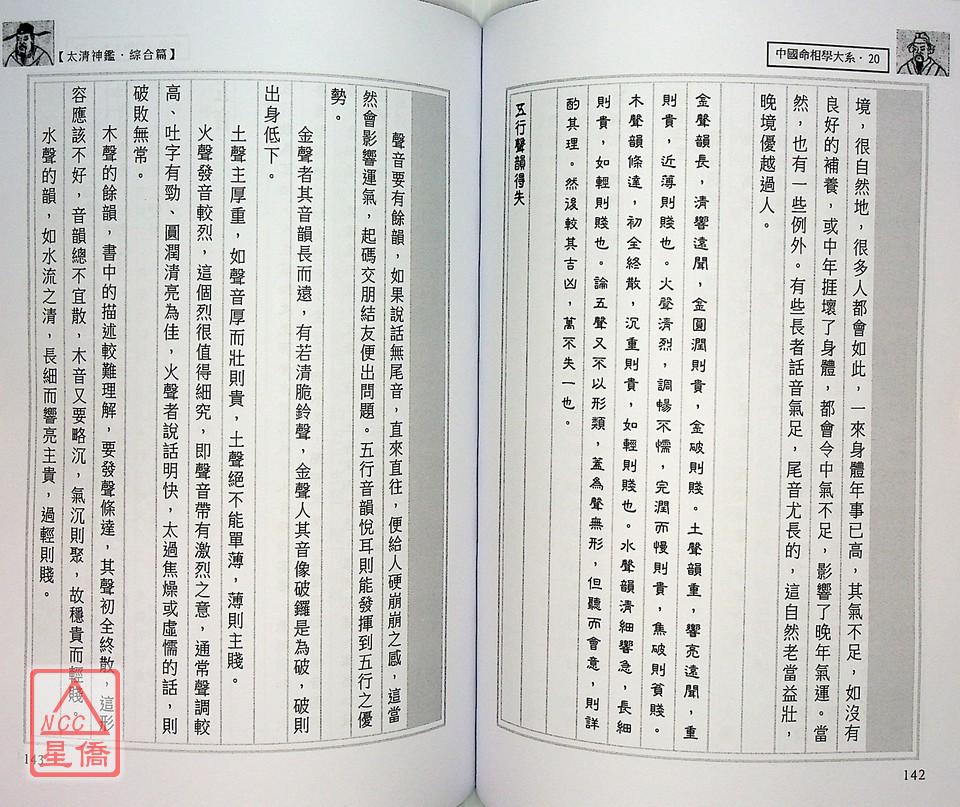 中國命相學大系·20
境，很自然地，很多人都會如此，一來身體年事已高，其氣不足，如沒有
良好的補養，或中年捱壞了身體，都會令中氣不足，影響了晚年氣運。當
然，也有一些例外。有些長者話音氣足，尾音尤長的，這自然老當益壯，
晚境優越過人。
金聲韻長，清響遠聞，金圓潤則貴，金破則賤。土聲韻重，響亮遠聞，重
則貴，近薄則賤也。火聲清烈，調暢不懦，完潤而慢則貴，焦破則貧賤。
木聲韻條達，初全終散，沉重則貴，如輕則賤也。水聲韻清細響急，長細
則貴，如輕則賤也。論五聲又不以形類，蓋為聲無形，但聽而會意，則詳
酌其理。然後較其吉凶，萬不失一也。
五行聲韻得失
142
【太清神鑑·綜合篇】
聲音要有餘韻，如果說話無尾音，直來直往，便給人硬崩崩之感，這當
然會影響運氣，起碼交朋結友便出問題。五行音韻悅耳則能發揮到五行之優
勢。
金聲者其音韻長而遠，有若清脆鈴聲，金聲人其音像破鑼是為破，破則
出身低下。
土聲主厚重，如聲音厚而壯則貴，土聲絕不能單薄，薄則主賤。
火聲發音較烈，這個烈很值得細究，即聲音帶有激烈之意，通常聲調較
高、吐字有勁、圓潤清亮為佳，火聲者說話明快，太過焦燥或虛懦的話，則
破敗無常。
木聲的餘韻，書中的描述較難理解，要發聲條達，其聲初全終散，這形
容應該不好，音韻總不宜散，木音又要略沉，氣沉則聚，故穩貴而輕賤。
水聲的韻，如水流之清，長細而響亮主貴，過輕則賤。
143
NCC
星僑